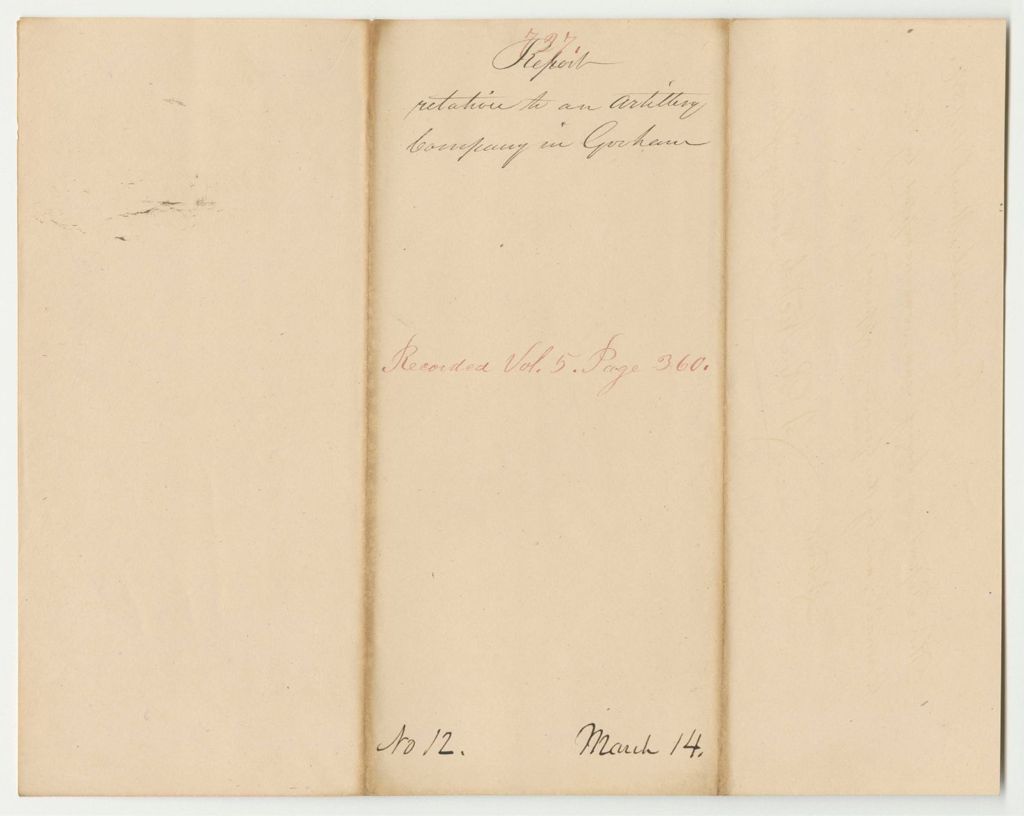 737.
Report
relative to an Artillery
Company in Gorham
Recorded Vol. 5. Page 360.
No 12. March 14.